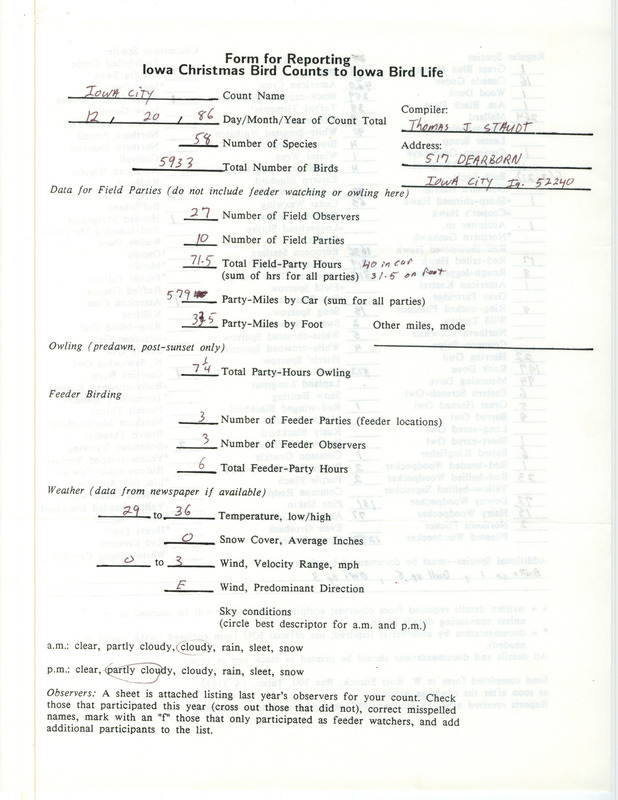 Form for Reporting
Iowa Christmas Bird Counts to Iowa Bird Life
IOWA CITY Count Name
12, 20, 86 Day/Month/Year of Count Total
Compiler:
Thomas J. STAUDT
58 Number of Species
Address:
517 DEARBORN
5933 Total Number of Birds
IOWA CITY Ia. 52240
Data for Field Parties (do not include feeder watching or owling here)
27 Number of Field Observers
10 Number of Field Parties
71.5 Total Field-Party Hours 40 in car
(sum of hrs for all parties) 31.5 on foot
579 Party-Miles by Car (sum for all parties)
Party-Miles by Foot Other miles, mode
Owling (predawn, post-sunset only)
7 1/4 Total Party-Hours Owling
Feeder Birding
3 Number of Feeder Parties (feeder locations)
3 Number of Feeder Observers
6 Total Feeder-Party Hours
Weather (data from newspaper if available)
29 to 36 Temperature, low/high
0 Snow Cover, Average Inches
0 to 3 Wind, Velocity Range, mph
E Wind, Predominant Direction
Sky conditions
(circle best descriptor for a.m. and p.m.)
a.m.: clear, partly cloudy, cloudy, rain, sleet, snow
p.m.: clear, partly cloudy, cloudy, rain, sleet, snow
Observers: A sheet is attached listing last year's observers for your count. Check
those that participated this year (cross out those that did not), correct misspelled
names, mark with an "f" those that only participated as feeder watchers, and add
additional participants to the list.